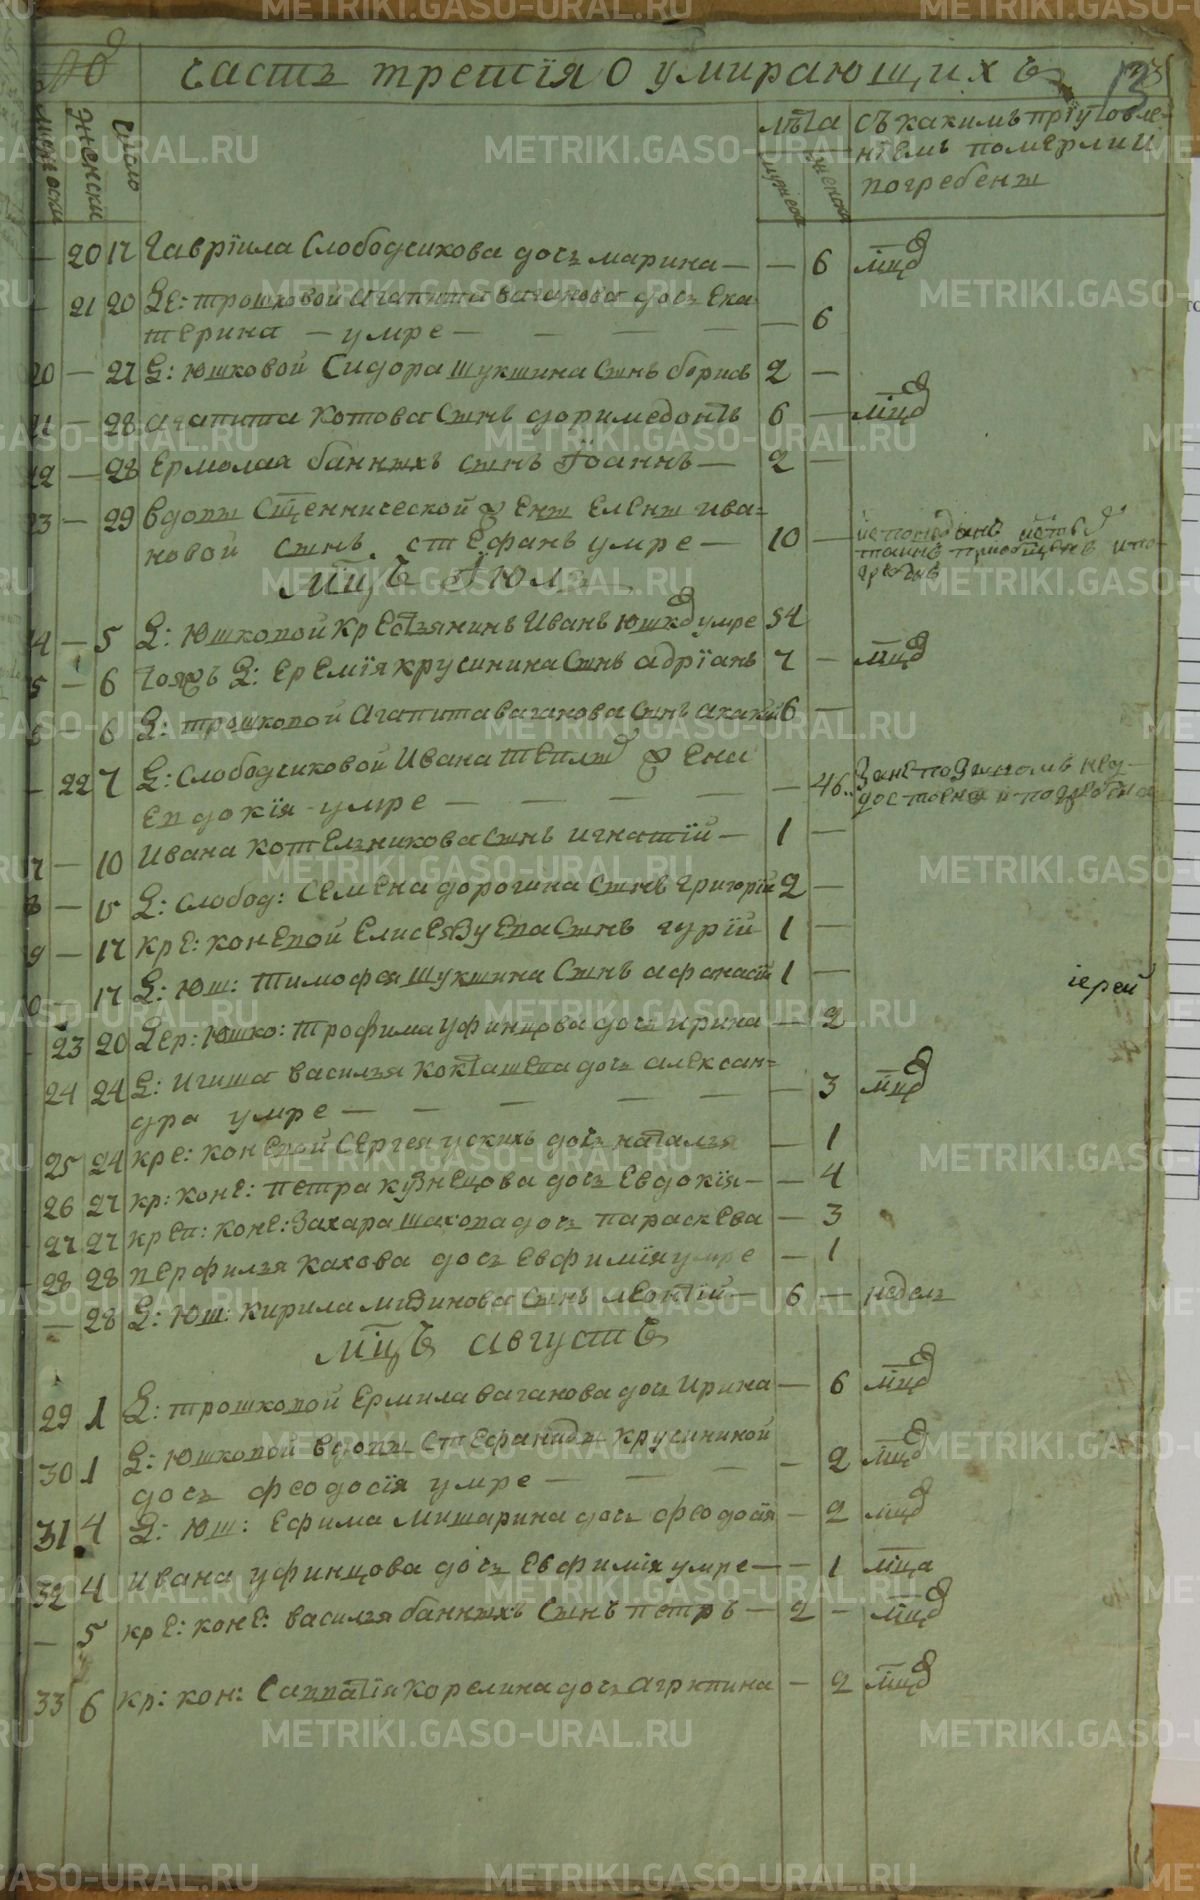 Часть третїя О умирающихъ
13
мужеска
женска
число
лѣта
съ какимъ прїуготовле-
нїемъ померли и
погребены
мужеска
женска
— 20 17 Гаврїила Слободчикова дочь марина — — 6 мцод
— 21 20 Де: трошковой агапита ваганова дочь Ека
терина — умре — — — — — 6
20 — 27 Д: Юшковой Сидора шукшина сынъ борисъ 2 —
21 — 28 агапита котова сынъ доримедонтъ 6 — мцод
22 — 28 Ермолая банныхъ сынъ Їоаннъ — 2 —
23 — 29 вдовы Сщеннической жены Елены ива=
новой сынъ стефанъ умре — 10 —
мцъ Їюль
24 — 5 Д: Юшковой крестьянинъ Иванъ Юшкод умре 54
25 — 6 тояжъ Д: Еремїя крусинина сынъ адрїанъ 7 — мцод
26 — 6 Д: трошковой Агапита ваганова сынъ акакїй 6 —
— 22 7 Д: Слободчиковой Ивана теплод жена
Евдокїя умре — — — — — 46
27 — 10 Ивана котельникова сынъ игнатїй — 1 —
28 — 15 Д: слобод: Семена дорогина сынъ григорїй 2 —
29 — 17 кре: коневой Елисея Зуева сынъ гурїй 1 —
30 — 17 Д: Юш: тимофея шукшина сынъ афанасїй 1 —
їерей
— 23 20 Дер: Юшко: трофима уфинцова дочь ирина — 2
24 24 Д: игиша василья кокташева дочь алексан=
дра умре — — — — — — 3 мцод
25 24 кре: коневой Сергея ускихъ дочь наталья — 1
26 27 кр: коне: петра кузнецова дочь Евдокїя — — 4
27 27 крес: коне: Захара шахова дочь параскева — 3
28 28 перфилья кахова дочь евфимїя умре — 1
— 28 Д: Юш: кирила мидинова сынъ леонтїй — 6 — недель
мцъ августъ
29 1 Д: трошковой Ермила ваганова дочь Ирина — 6 мцод
30 1 Д: Юшковой вдовы стефаниды крусининой
дочь феодосїя умре — — — — 2 мцод
31 4 Д: Юш: Ефима мишарина дочь феодосїя — 2 мцод
32 4 ивана уфинцова дочь Евфимїя умре — — 1 мца
— 5 кре: коне: василья банныхъ сынъ петръ — 2 — мцод
33 6 кр: кон: Савватїя корелина дочь агрипина — 2 мцод
METRIKI.GASO-URAL.RU